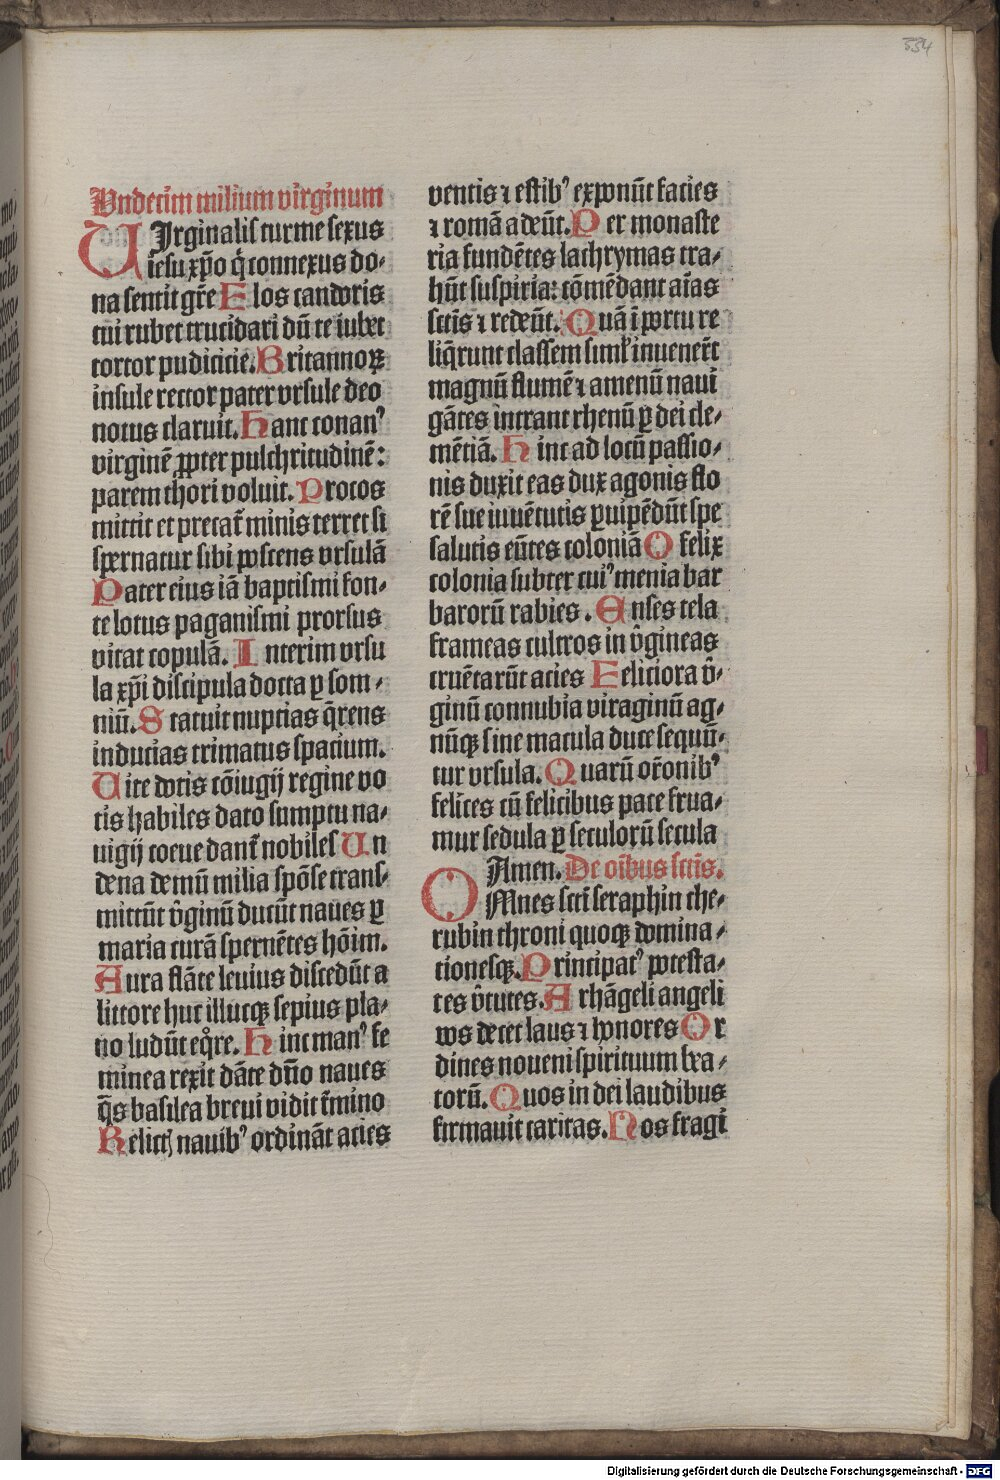 334
Vndecim milium virginum
UJrginalis turme sexus
iesu xp̄o q̄ connexus do⸗
na sentit gr̄e Flos candoris
cui rubet trucidari dū te iubet
tortor pudicicie. Britannoꝝ
insule rector pater vrsule deo
notus claruit. Hanc conanꝰ
virginē ꝓpter pulchritudinē:
parem thori voluit. Procos
mittit et precat̄ minis terret si
spernatur sibi poscens vrsulā
Pater eius iā baptismi fon⸗
te lotus paganismi prorsus
vitat copulā. Interim vrsu
la xp̄i discipula docta ꝑ som⸗
niū. Statuit nuptias q̄rens
inducias trimatus spacium.
Vice dotis cōiugij regine vo
tis habiles dato sumptu na⸗
uigij coeue dant̄ nobiles Un
dena demū milia spōse trans⸗
mittūt v̄ginū ducūt naues ꝑ
maria curā spernētes hōim.
Aura flāte leuius discedūt a
littore huc illucqꝫ sepius pla⸗
no ludūt eq̊re. Hinc manꝰ fe
minea rexit dāte dn̄o naues
q̄s basilea breui vidit t̄mino
Relictꝭ nauibꝰ ordināt acies
ventis ⁊ estibꝰ exponūt facies
⁊ romā adeūt. Per monaste
ria fundētes lachrymas tra⸗
hūt suspiria: cōmēdant aīas
sctīs ⁊ redeūt. Quā ī portu re
liq̄runt classem simľ inuener̄t
magnū flumē ⁊ amenū naui
gātes intrant rhenū ꝑ dei cle⸗
mētiā. Hinc ad locū passio⸗
nis duxit eas dux agonis flo
rē sue iuuētutis ꝑuipēdūt spe
salutis eūtes coloniā O felix
colonia subter cuiꝰ menia bar
barorū rabies. Enses tela
frameas cultros in v̄gineas
cruētarūt acies Feliciora v̄⸗
ginū connubia viraginū ag⸗
nūqꝫ sine macula duce sequū⸗
tur vrsula. Quarū or̄onibꝰ
felices cū felicibus pace frua⸗
mur sedula ꝑ seculorū secula
Amen. De oībus sctīs.
OMnes sctī seraphin che⸗
rubin throni quoqꝫ domina⸗
tionesqꝫ. Principatꝰ potesta⸗
tes v̄tutes. Arhāgeli angeli
vos decet laus ⁊ honores Or
dines noueni spirituum bea⸗
torū. Quos in dei laudibus
firmauit caritas. Nos fragi
Digitalisierung gefördert durch die Deutsche Forschungsgemeinschaft - DFG